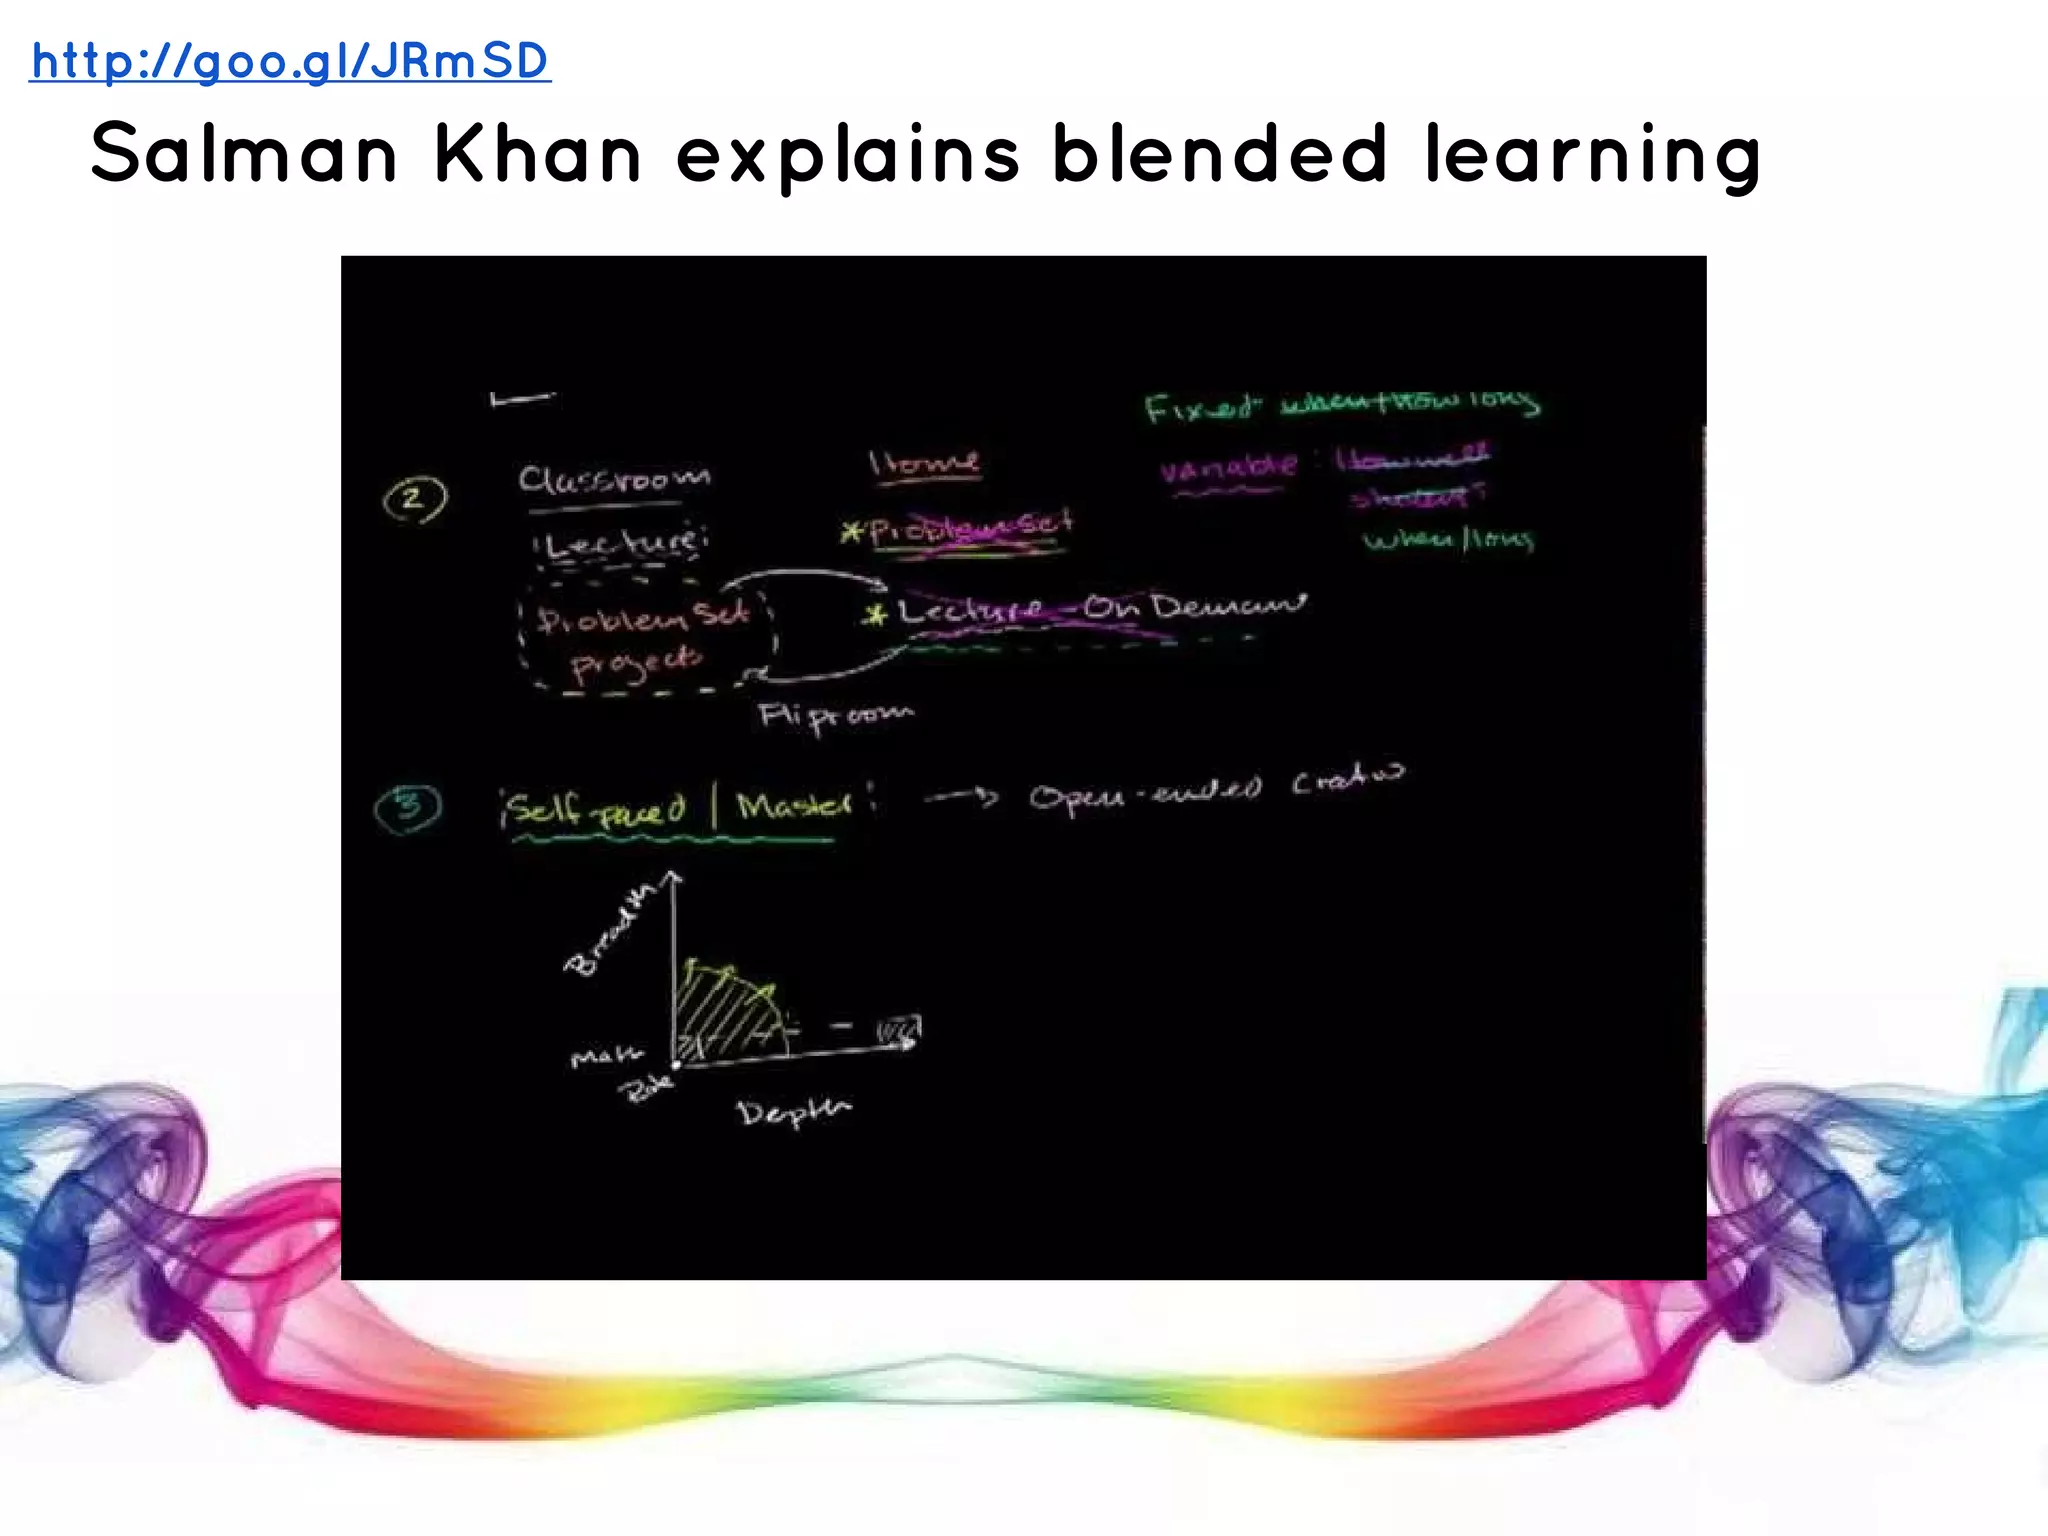 http://goo.gl/JRmSD
Salman Khan explains blended learning
Fixed when/how long
Classroom
Home
variable: How well
2
student:
Lecture
*Problem Set
when/long
Problem Set
projects
* Lecture - On Demand
Fliproom
3
Self-paced | Master
Open-ended
Breadth
Math
Depth